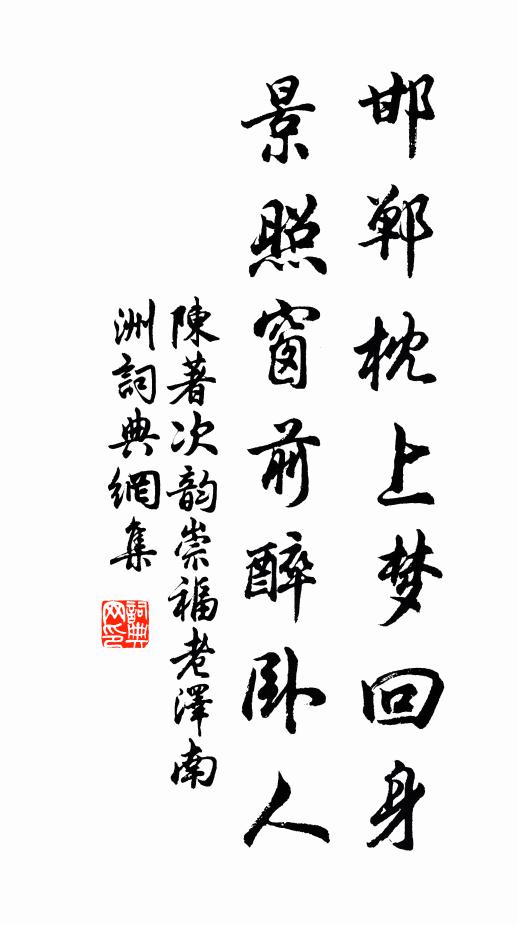 邯郸枕上梦回身
景照窗前醉卧人
陳著次韵崇福老澤南
洲詞典網集
詞典網印